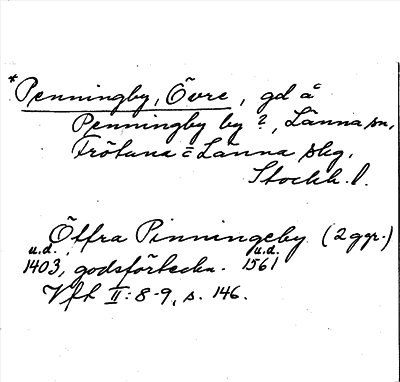 *Penningby, Övre, gd å
Penningby by?, Länna sn,
Frötuna = Länna skg,
Stockh. l.
Öffra Pinningeby (2 ggr.)
u.d. u.d.
1403, godsförteckn. 1561
Vfk II:8-9, s. 146.